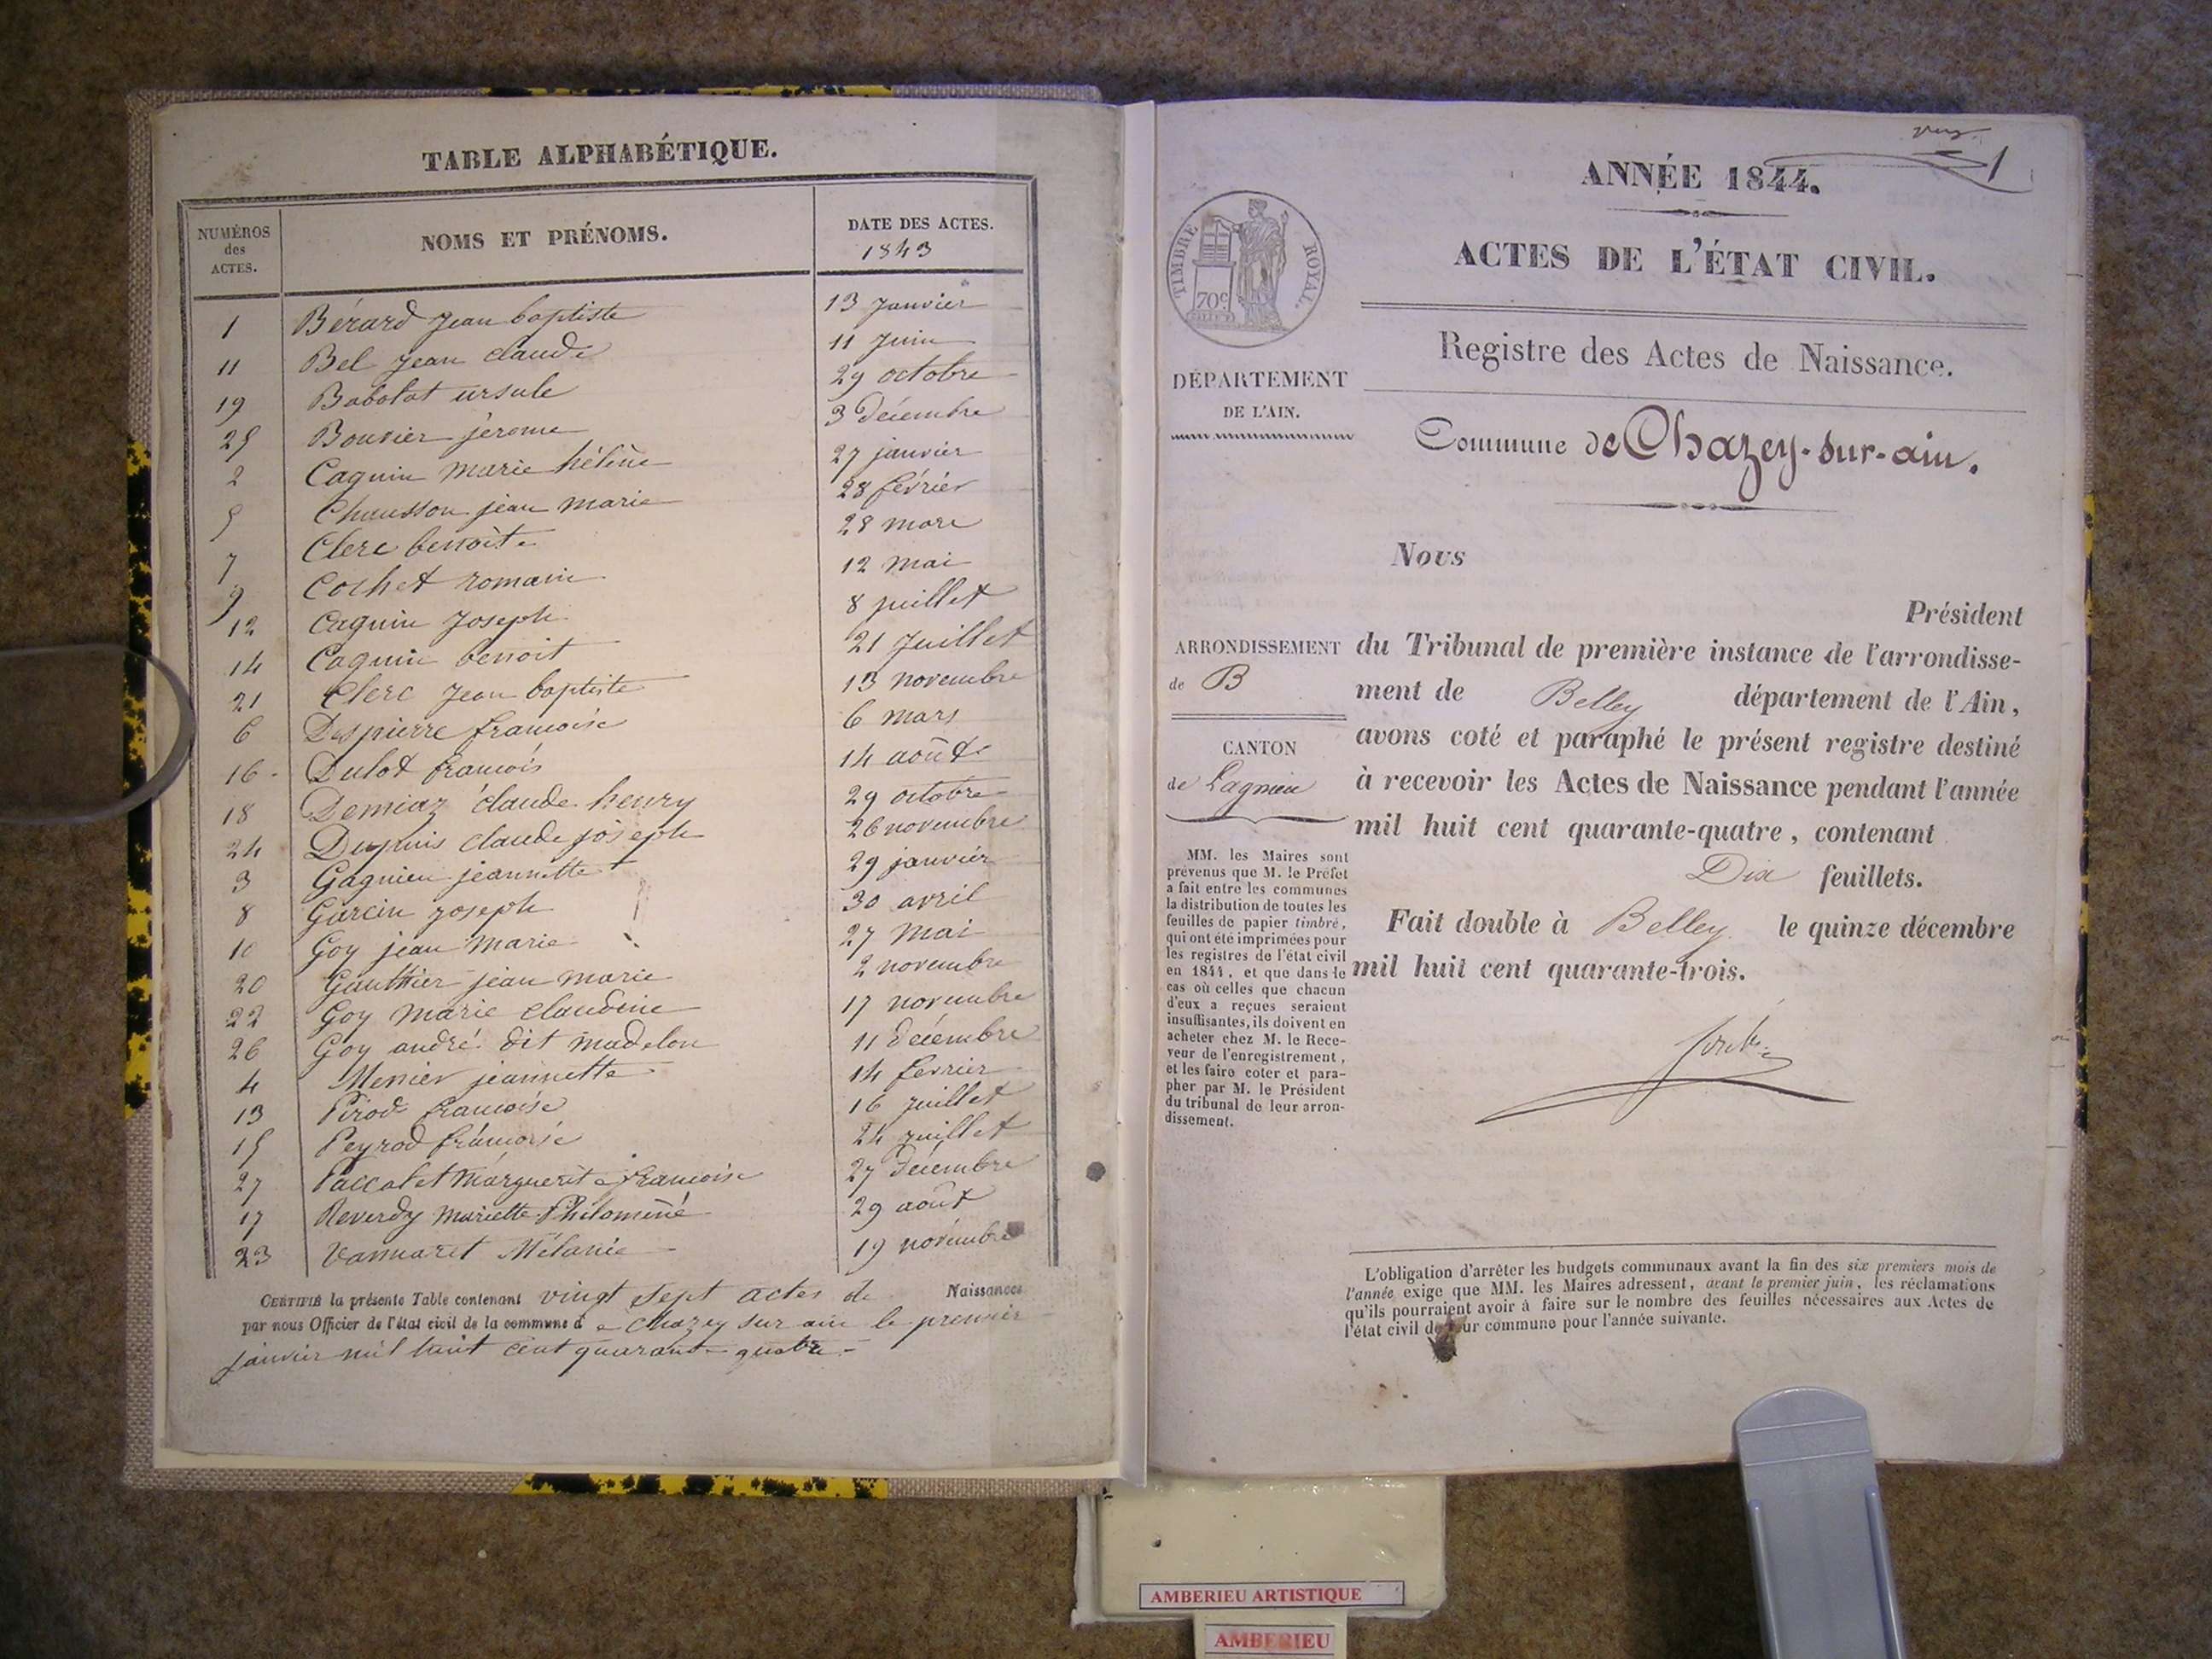 TABLE ALPHABÉTIQUE.
NUMÉROS des ACTES.
NOMS ET PRÉNOMS.
DATE DES ACTES.
1843
1 Bérard Jean baptiste 13 Janvier
11 Bel Jean claude 11 Juin
19 Babolat ursule 29 octobre
25 Bouvier jérome 3 Décembre
2 Caquin marie hélène 27 janvier
5 Chausson jean marie 28 février
7 Clerc benoite 28 mars
9 Cochet romain 12 mai
12 Caquin Joseph 8 juillet
14 Caquin benoit 21 Juillet
21 Clerc Jean baptiste 13 novembre
6 Despierre francoise 6 mars
16 Dulot francois 14 août
18 Demiaz claude henry 29 octobre
24 Dupuis claude joseph 26 novembre
3 Gagnieu jeannette 29 janvier
8 Garcin joseph 30 avril
10 Goy jean marie 27 mai
20 Gauthier jean marie 2 novembre
22 Goy marie claudine 17 novembre
26 Goy andré dit madelon 11 Décembre
4 Menier jeannette 14 fevrier
13 Pirod francoise 16 juillet
15 Peyrod francoise 24 juillet
27 Paccalet marguerite francoise 27 Décembre
17 Reverdy mariette Philomène 29 août
23 Vannaret Mélanie 19 novembre
CERTIFIÉ la présente Table contenant vingt sept actes de Naissances
par nous Officier de l'état civil de la commune d e chazey sur ain le premier
janvier mil huit cent quarante quatre
1
ANNÉE 1844.
ACTES DE L'ÉTAT CIVIL.
TIMBRE ROYAL.
70c
Registre des Actes de Naissance.
DÉPARTEMENT
DE L'AIN.
Commune de Chazey-sur-ain.
Nous
Président
ARRONDISSEMENT
de B
du Tribunal de première instance de l'arrondisse-
ment de Belley département de l'Ain,
avons coté et paraphé le présent registre destiné
CANTON
de Lagnieu
à recevoir les Actes de Naissance pendant l'année
mil huit cent quarante-quatre, contenant
Dix feuillets.
Fait double à Belley le quinze décembre
mil huit cent quarante-trois.
MM. les Maires sont
prévenus que M. le Préfet
a fait entre les communes
la distribution de toutes les
feuilles de papier timbré,
qui ont été imprimées pour
les registres de l'état civil
en 1844, et que dans le
cas où celles que chacun
d'eux a reçues seraient
insuffisantes, ils doivent en
acheter chez M. le Rece-
veur de l'enregistrement,
et les faire coter et para-
pher par M. le Président
du tribunal de leur arron-
dissement.
L'obligation d'arrêter les budgets communaux avant la fin des six premiers mois de
l'année exige que MM. les Maires adressent, avant le premier juin, les réclamations
qu'ils pourraient avoir à faire sur le nombre des feuilles nécessaires aux Actes de
l'état civil de leur commune pour l'année suivante.
AMBERIEU ARTISTIQUE
AMBERIEU